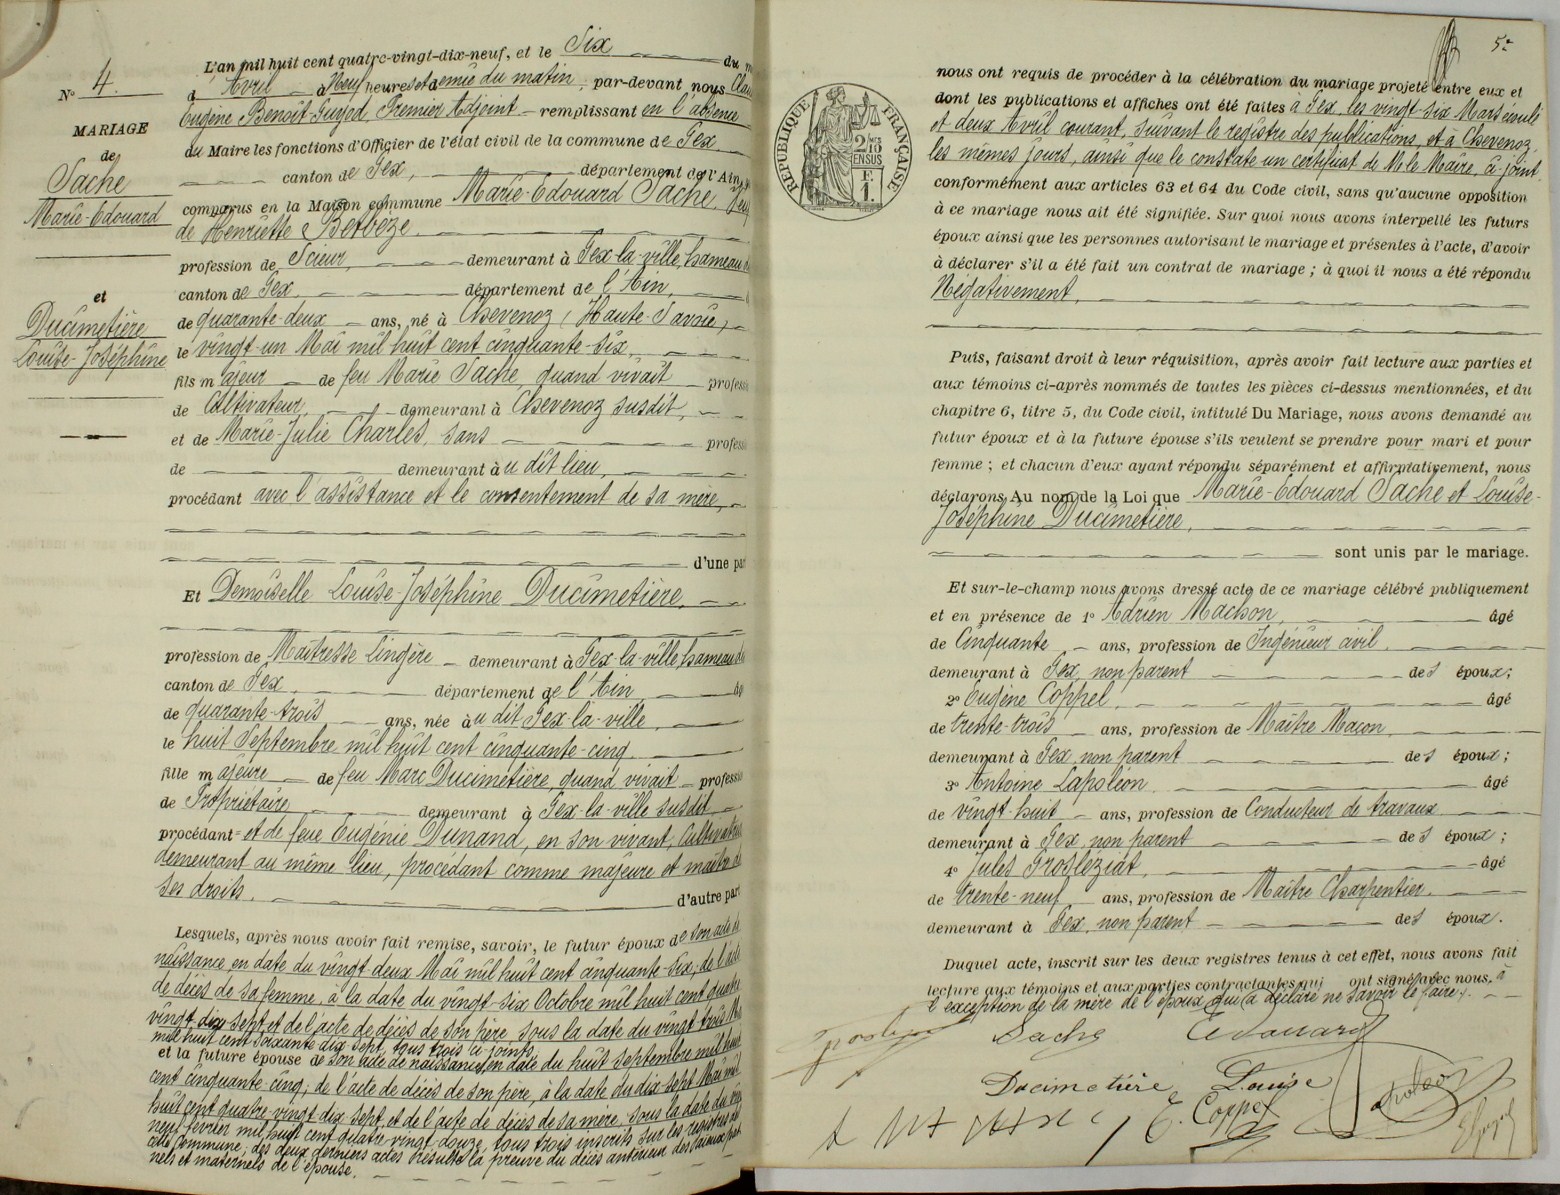 N° 4.
MARIAGE
de
Sache
Marie-Edouard
et
Ducimetière
Louise-Joséphine
L'an mil huit cent quatre-vingt-dix-neuf, et le Six du
d'Avril à Neuf heures et demie du matin, par-devant nous
Eugène Benoît-Guyod, Premier Adjoint remplissant en l'absence
du Maire les fonctions d'Officier de l'état civil de la commune de Gex
canton de Gex, département de l'Ain,
comparus en la Maison commune Marie-Edouard Sache,
de Henriette Berbèze
profession de Scieur, demeurant à Gex-la-ville, hameau
canton de Gex, département de l'Ain,
de quarante-deux ans, né à Chevenoz (Haute-Savoie)
le vingt-un Mai mil huit cent cinquante-six,
fils majeur de feu Marie Sache, quand vivait
de Cultivateur, demeurant à Chevenoz susdit,
et de Marie-Julie Charles, sans
de demeurant au dit lieu,
procédant avec l'assistance et le consentement de sa mère,
d'une
Et Demoiselle Louise-Joséphine Ducimetière,
profession de Maîtresse lingère demeurant à Gex-la-ville, hameau
canton de Gex, département de l'Ain
de quarante-trois ans, née au dit Gex-la-ville,
le huit Septembre mil huit cent cinquante-cinq
fille majeure de feu Marc Ducimetière, quand vivait
de Propriétaire, demeurant à Gex-la-ville susdit,
procédant = et de feue Eugénie Dunand, en son vivant,
demeurant au même lieu, procédant comme majeure et maître de
ses droits. d'autre part
Lesquels, après nous avoir fait remise, savoir, le futur époux de son acte de
naissance, en date du vingt-deux Mai mil huit cent cinquante-six; de l'acte
de décès de sa femme, à la date du vingt-six Octobre mil huit cent quatre
vingt dix sept et de l'acte de décès de son père, sous la date du vingt trois
mil huit cent soixante dix sept, tous trois ci-joints,
et la future épouse de son acte de naissance, en date du huit Septembre mil huit
cent cinquante-cinq; de l'acte de décès de son père, à la date du dix-sept Mai mil
huit cent quatre-vingt dix sept, et de l'acte de décès de sa mère, sous la date du
neuf février mil huit cent quatre vingt douze, tous trois inscrits sur les registres de
cette Commune; des deux derniers actes résulte la preuve du décès antérieur des
nels et maternels de l'épouse.
5
RÉPUBLIQUE FRANÇAISE
nous ont requis de procéder à la célébration du mariage projeté entre eux et
dont les publications et affiches ont été faites à Gex, les vingt-six Mars écoulé
et deux Avril courant, suivant le registre des publications, et à Chevenoz,
les mêmes jours, ainsi que le constate un certificat de M. le Maire, ci-joint
conformément aux articles 63 et 64 du Code civil, sans qu'aucune opposition
à ce mariage nous ait été signifiée. Sur quoi nous avons interpellé les futurs
époux ainsi que les personnes autorisant le mariage et présentes à l'acte, d'avoir
à déclarer s'il a été fait un contrat de mariage ; à quoi il nous a été répondu
Négativement,
Puis, faisant droit à leur réquisition, après avoir fait lecture aux parties et
aux témoins ci-après nommés de toutes les pièces ci-dessus mentionnées, et du
chapitre 6, titre 5, du Code civil, intitulé Du Mariage, nous avons demandé au
futur époux et à la future épouse s'ils veulent se prendre pour mari et pour
femme ; et chacun d'eux ayant répondu séparément et affirmativement, nous
déclarons Au nom de la Loi que Marie-Edouard Sache et Louise-
Joséphine Ducimetière,
sont unis par le mariage.
Et sur-le-champ nous avons dressé acte de ce mariage célébré publiquement
et en présence de 1° Adrien Machon, âgé
de Cinquante ans, profession de Ingénieur civil
demeurant à Gex, non parent des époux;
2° Eugène Coppel, âgé
de trente-trois ans, profession de Maître Maçon,
demeurant à Gex, non parent des époux;
3° Antoine Lapoléon, âgé
de vingt-huit ans, profession de Conducteur de travaux
demeurant à Gex, non parent des époux;
4° Jules Grosléziat, âgé
de trente-neuf ans, profession de Maître Charpentier.
demeurant à Gex, non parent des époux.
Duquel acte, inscrit sur les deux registres tenus à cet effet, nous avons fait
lecture aux témoins et aux parties contractantes qui ont signé avec nous, à
l'exception de la mère de l'époux qui a déclaré ne savoir le faire.
Sache Edouard
Ducimetière Louise
E. Coppel